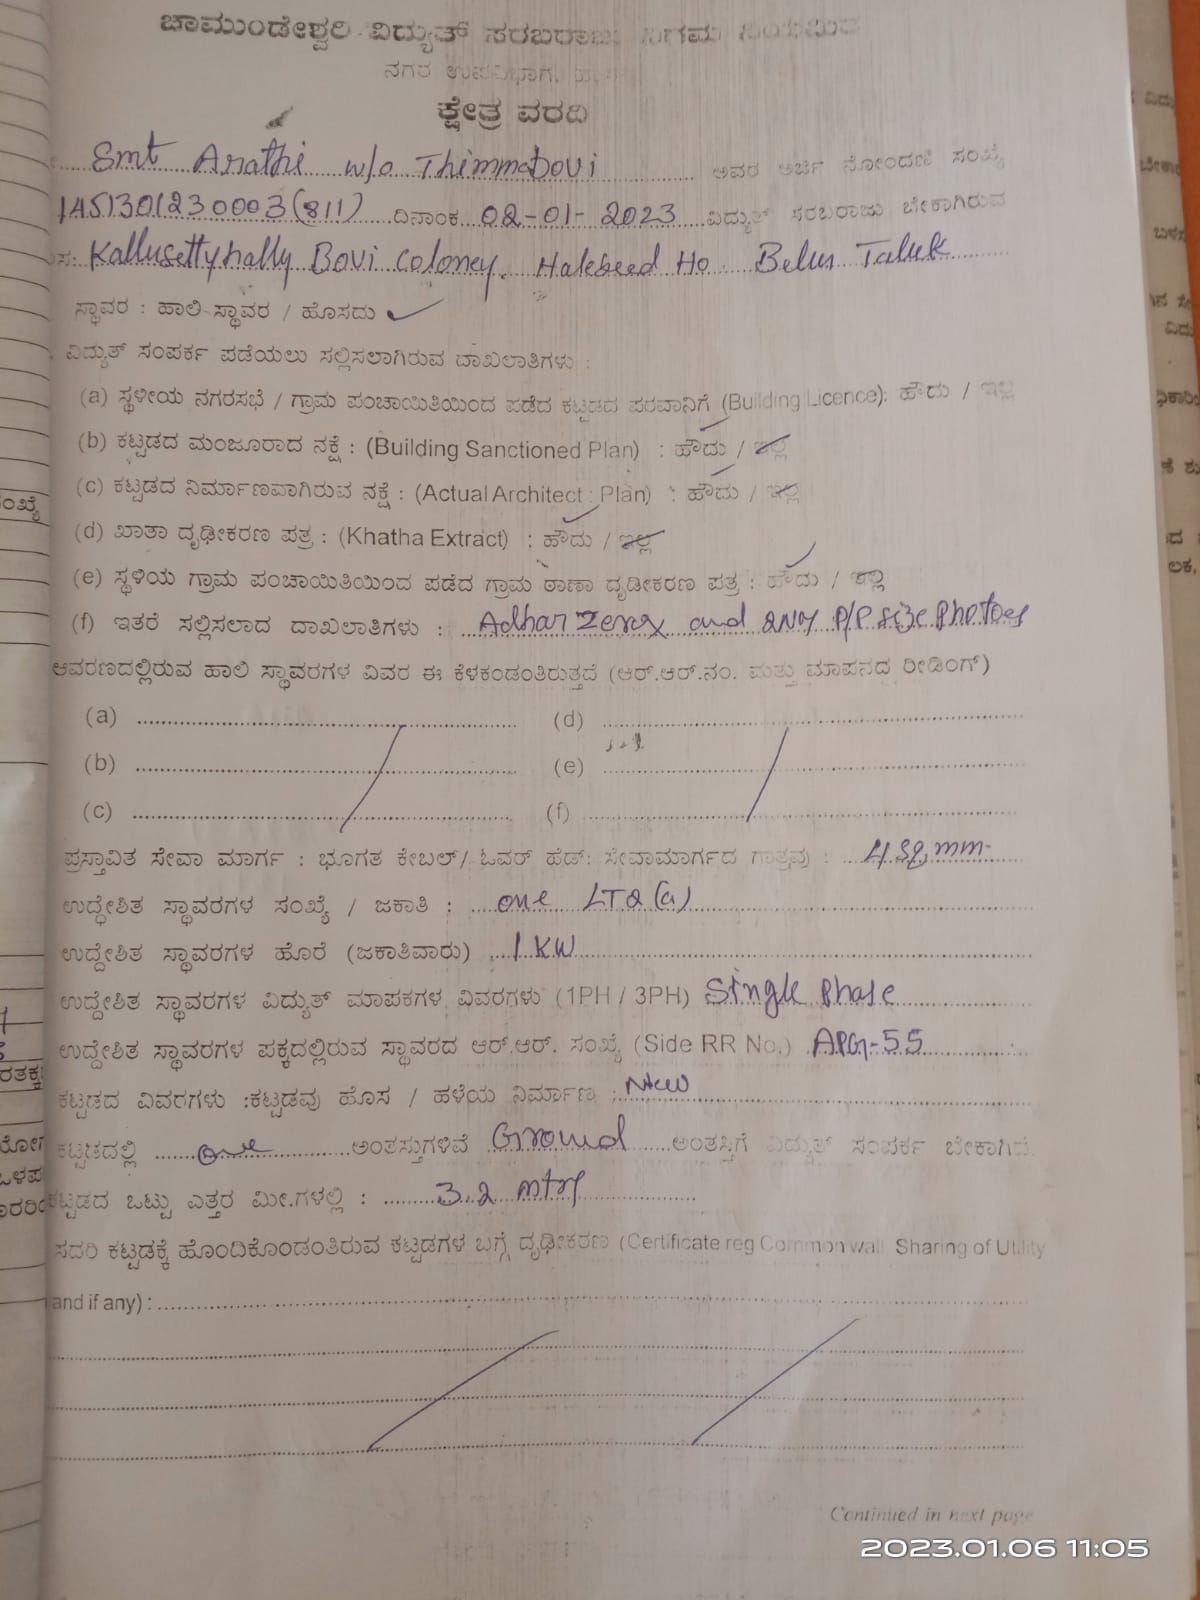 ಚಾಮುಂಡೇಶ್ವರಿ ವಿದ್ಯುತ್ ಸರಬರಾಜು ನಿಗಮ ನಿಯಮಿತ
ನಗರ ಉಪವಿಭಾಗ,
ಕ್ಷೇತ್ರ ವರದಿ
Smt Arathi w/o ThimmaBovi ಅವರ ಅರ್ಜಿ ನೋಂದಣಿ ಸಂಖ್ಯೆ
1451301230003(811) ದಿನಾಂಕ 02-01-2023 ವಿದ್ಯುತ್ ಸರಬರಾಜು ಬೇಕಾಗಿರುವ
Kallusettyhally Bovi Coloney, Halebeed Ho Belur Taluk
ಸ್ಥಾವರ : ಹಾಲಿ ಸ್ಥಾವರ / ಹೊಸದು ✓
ವಿದ್ಯುತ್ ಸಂಪರ್ಕ ಪಡೆಯಲು ಸಲ್ಲಿಸಲಾಗಿರುವ ದಾಖಲಾತಿಗಳು :
(a) ಸ್ಥಳೀಯ ನಗರಸಭೆ / ಗ್ರಾಮ ಪಂಚಾಯಿತಿಯಿಂದ ಪಡೆದ ಕಟ್ಟಡದ ಪರವಾನಿಗೆ (Building Licence): ಹೌದು / ಇಲ್ಲ
(b) ಕಟ್ಟಡದ ಮಂಜೂರಾದ ನಕ್ಷೆ : (Building Sanctioned Plan) : ಹೌದು / ಇಲ್ಲ
(c) ಕಟ್ಟಡದ ನಿರ್ಮಾಣವಾಗಿರುವ ನಕ್ಷೆ : (Actual Architect : Plan) : ಹೌದು / ಇಲ್ಲ
(d) ಖಾತಾ ದೃಢೀಕರಣ ಪತ್ರ : (Khatha Extract) : ಹೌದು / ಇಲ್ಲ
(e) ಸ್ಥಳಿಯ ಗ್ರಾಮ ಪಂಚಾಯಿತಿಯಿಂದ ಪಡೆದ ಗ್ರಾಮ ಠಾಣಾ ದೃಢೀಕರಣ ಪತ್ರ : ಹೌದು / ಇಲ್ಲ
(f) ಇತರೆ ಸಲ್ಲಿಸಲಾದ ದಾಖಲಾತಿಗಳು : Adhar Zerox and 2NOs P/P size Photoes
ಆವರಣದಲ್ಲಿರುವ ಹಾಲಿ ಸ್ಥಾವರಗಳ ವಿವರ ಈ ಕೆಳಕಂಡಂತಿರುತ್ತದೆ (ಆರ್.ಆರ್.ನಂ. ಮತ್ತು ಮಾಪನದ ರೀಡಿಂಗ್)
(a) (d)
(b) (e)
(c) (f)
ಪ್ರಸ್ತಾವಿತ ಸೇವಾ ಮಾರ್ಗ : ಭೂಗತ ಕೇಬಲ್/ ಓವರ್ ಹೆಡ್: ಸೇವಾಮಾರ್ಗದ ಗಾತ್ರವು : 4 Sq,mm
ಉದ್ಧೇಶಿತ ಸ್ಥಾವರಗಳ ಸಂಖ್ಯೆ / ಜಕಾತಿ : one LT2(a)
ಉದ್ದೇಶಿತ ಸ್ಥಾವರಗಳ ಹೊರೆ (ಜಕಾತಿವಾರು) 1 KW
ಉದ್ದೇಶಿತ ಸ್ಥಾವರಗಳ ವಿದ್ಯುತ್ ಮಾಪಕಗಳ ವಿವರಗಳು (1PH / 3PH) Single Phase
ಉದ್ದೇಶಿತ ಸ್ಥಾವರಗಳ ಪಕ್ಕದಲ್ಲಿರುವ ಸ್ಥಾವರದ ಆರ್.ಆರ್. ಸಂಖ್ಯೆ (Side RR No.) APG-55
ಕಟ್ಟಡದ ವಿವರಗಳು :ಕಟ್ಟಡವು ಹೊಸ / ಹಳೆಯ ನಿರ್ಮಾಣ : New
ಕಟ್ಟಡದಲ್ಲಿ one ಅಂತಸ್ತುಗಳಿವೆ Ground ಅಂತಸ್ತಿಗೆ ವಿದ್ಯುತ್ ಸಂಪರ್ಕ ಬೇಕಾಗಿದೆ.
ಕಟ್ಟಡದ ಒಟ್ಟು ಎತ್ತರ ಮೀ.ಗಳಲ್ಲಿ : 3.2 mtrs
ಸದರಿ ಕಟ್ಟಡಕ್ಕೆ ಹೊಂದಿಕೊಂಡಂತಿರುವ ಕಟ್ಟಡಗಳ ಬಗ್ಗೆ ದೃಢೀಕರಣ (Certificate reg Common wall, Sharing of Utility
and if any) :
Continued in next page
2023.01.06 11:05